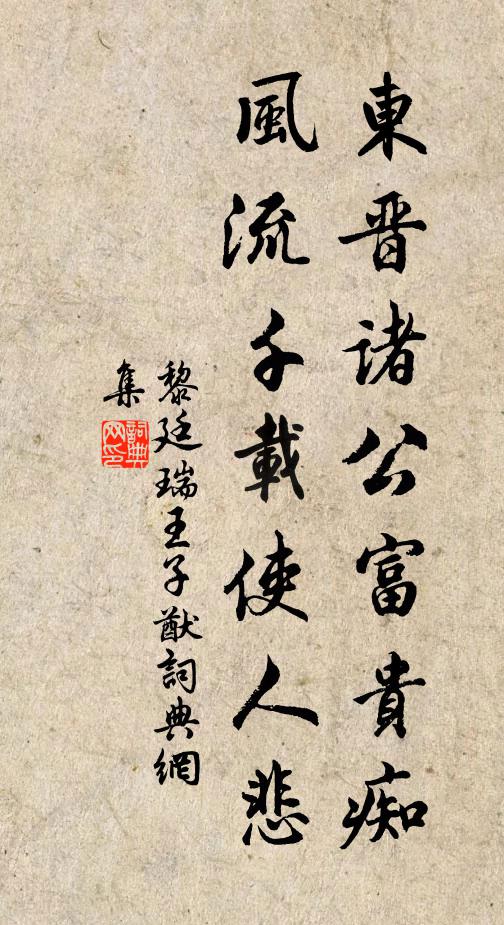 東晋諸公富貴痴
風流千載使人悲
黎廷瑞王子猷詞典網
集
詞典网印